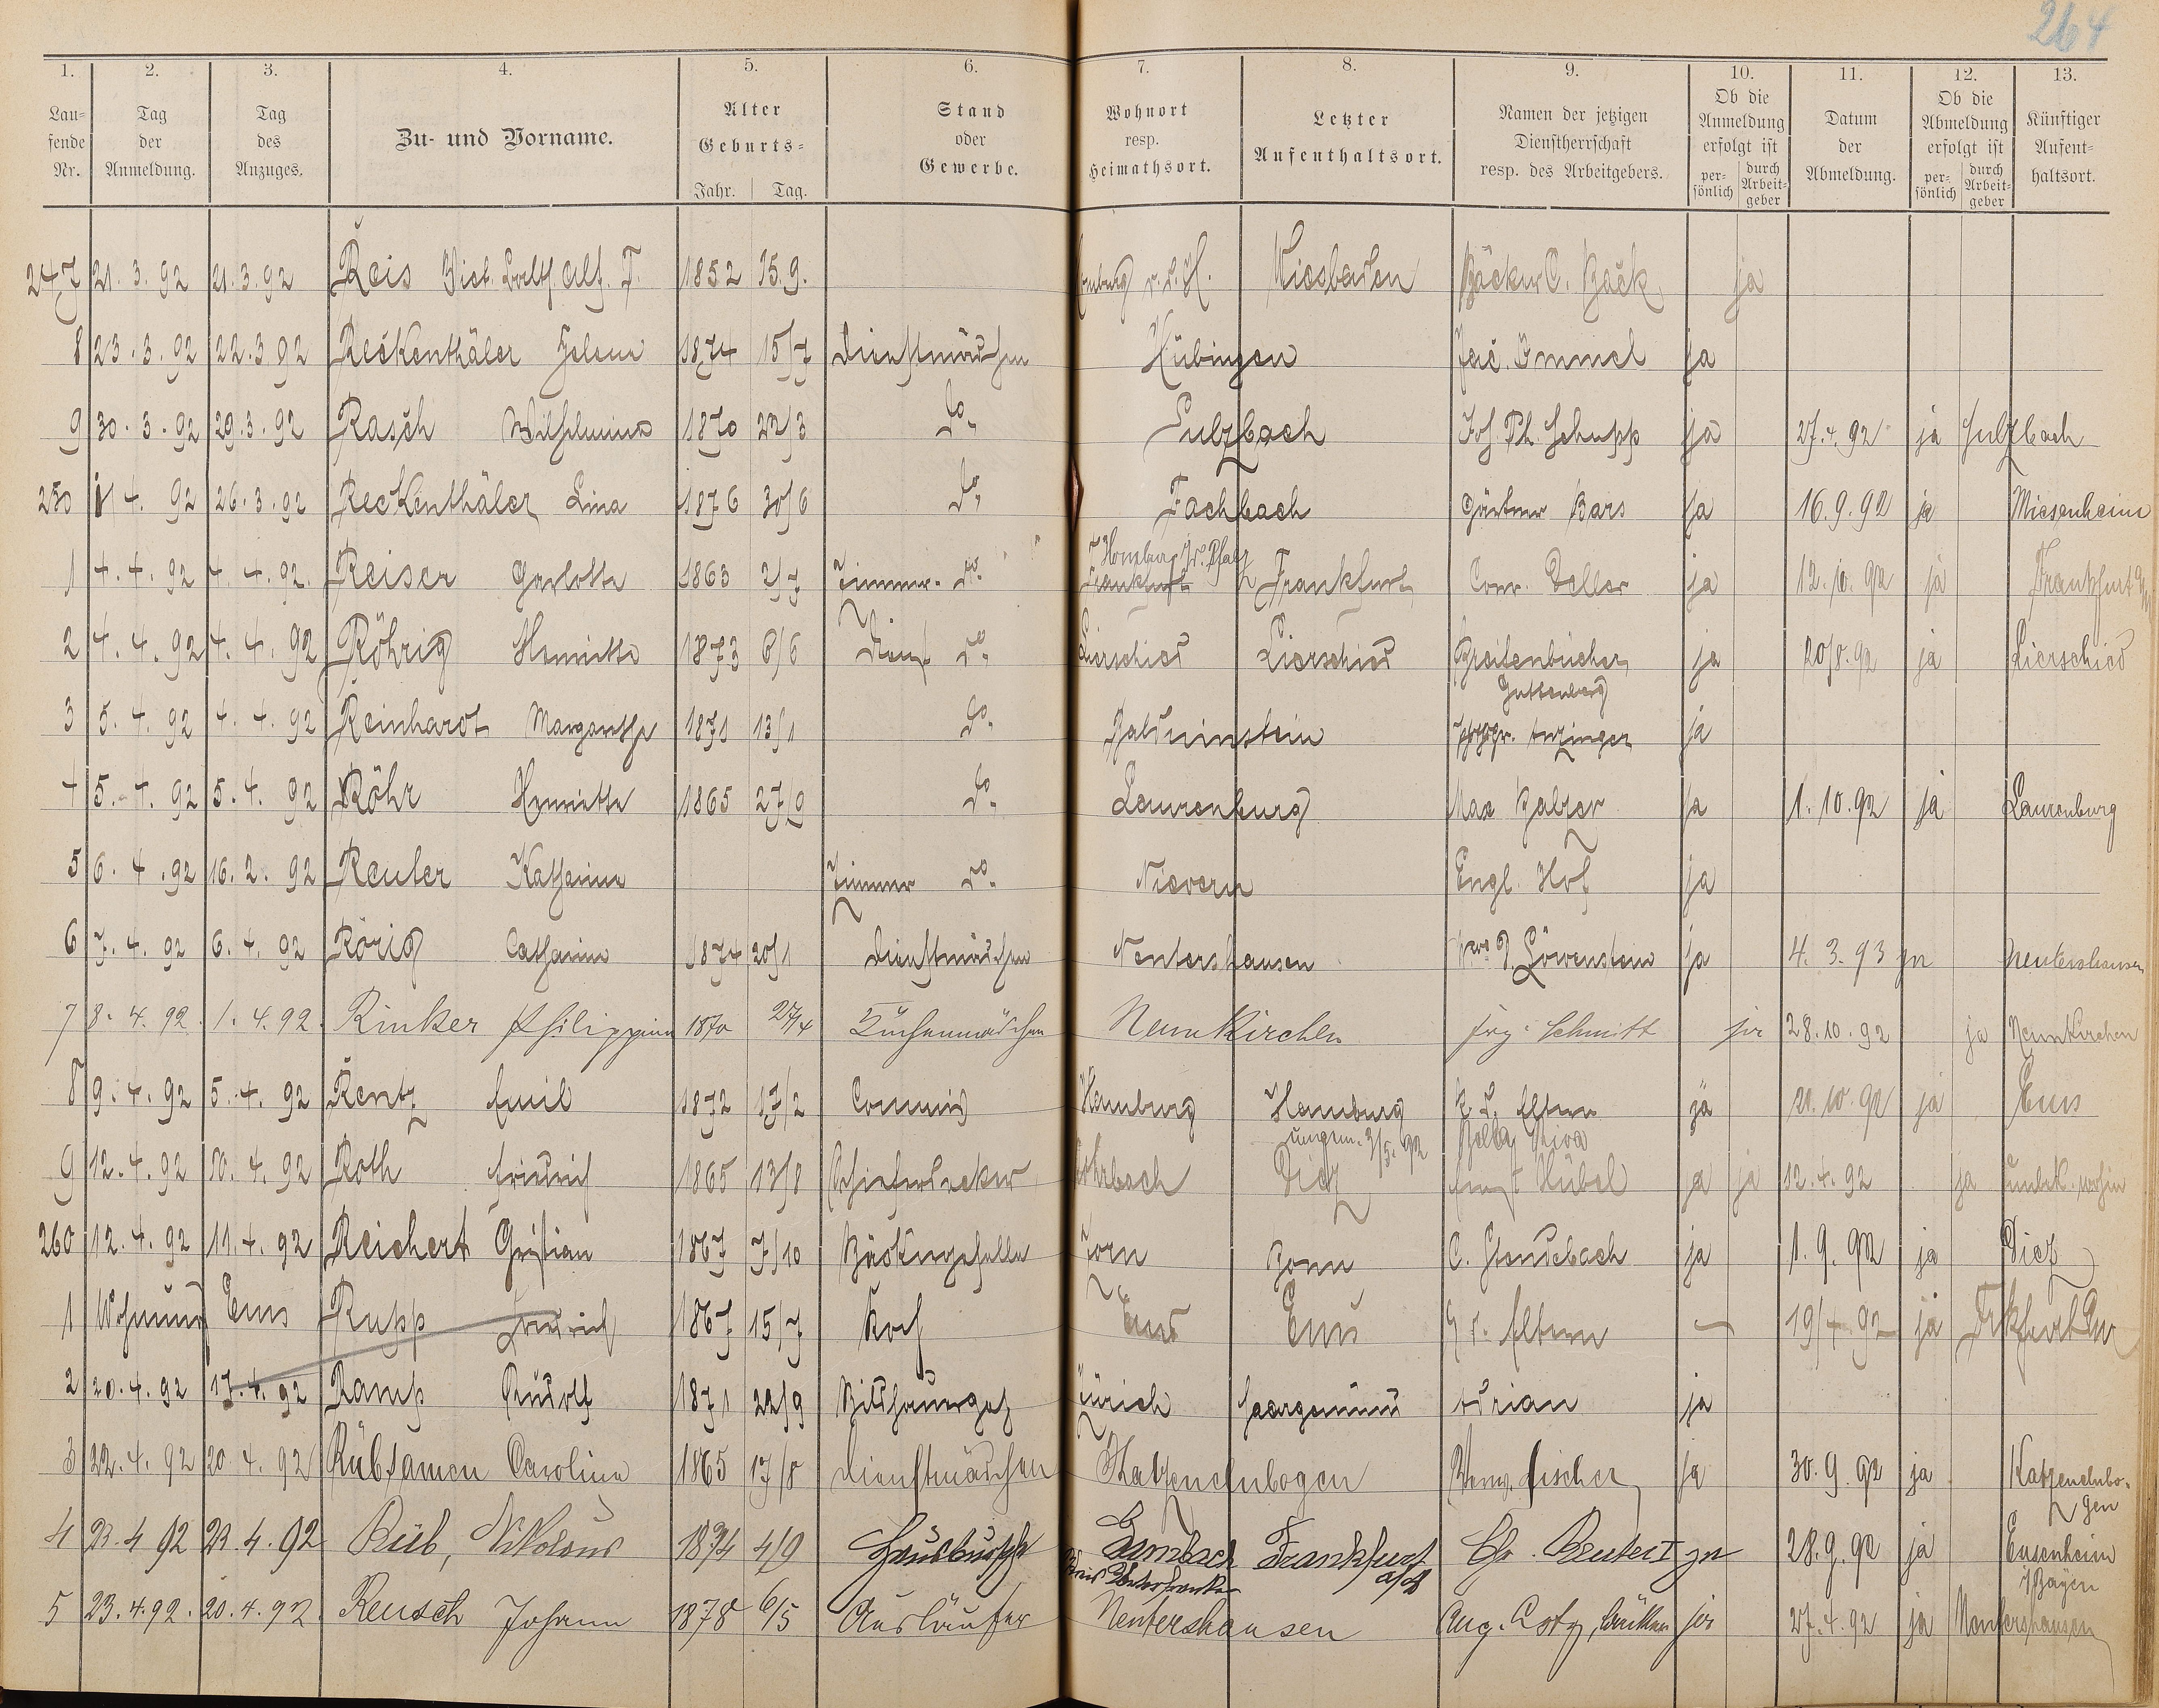 264
1. 2. 3. 4. 5. 6. 7. 8. 9. 10. 11. 12. 13.
Lau=fende Nr. Tag der Anmeldung. Tag des Anzuges. Zu- und Vorname. Alter Geburts= Jahr. Tag. Stand oder Gewerbe. Wohnort resp. Heimathsort. Letzter Aufenthaltsort. Namen der jetzigen Dienstherrschaft resp. des Arbeitgebers. Ob die Anmeldung erfolgt ist per=sönlich durch Arbeit=geber Datum der Abmeldung. Ob die Abmeldung erfolgt ist per=sönlich durch Arbeit=geber Künftiger Aufent=haltsort.
247 21.3.92 21.3.92 Reis 1852 15.9. v.d.H. Wiesbaden Bäcker C. Back ja
8 23.3.92 22.3.92 Reckenthäler Helene 1874 15/7 Dienstmädchen Hübingen Jac. Immel ja
9 30.3.92 29.3.92 Rasch Wilhelmine 1870 22/3 do. Sulzbach Joh. Ph. Schupp ja 27.4.92 ja Sulzbach
250 1/4.92 26.3.92 Reckenthäler Lina 1876 30/6 do. Fachbach Gärtner Bars ja 16.9.92 ja Miesenheim
Homburg Pfalz
1 4.4.92 4.4.92. Reiser Charlotte 1863 2/7 Zimmer- do. Frankfurt Frankfurt Conr. Deller ja 12.10.92 ja Frankfurt
2 4.4.92 4.4.92 Röhrig Henriette 1873 6/6 Dienst do. Lierschied Lierschied Breitenbücher ja 20/8.92 ja Lierschied
Guttenberg
3 5.4.92 4.4.92 Reinhardt Margarethe 1871 13/1 do. Balduinstein Anzinger ja
4 5.4.92 5.4.92 Röhr Henriette 1865 27/9 do. Laurenburg Max Balzer ja 1.10.92 ja Laurenburg
5 6.4.92 16.2.92 Reuter Katharina Zimmer do. Nievern Engl. Hof ja
6 7.4.92 6.4.92 Rörig Catharine 1874 20/1 Dienstmädchen Nentershausen Löwenstein ja 4.3.93 ja Nentershausen
7 8.4.92. 1.4.92. Rinker Philippine 1870 27/4 Küchenmädchen Neunkirchen Schmitt ja 28.10.92 ja Neunkirchen
8 9.4.92 5.4.92 Rentz Emil 1872 17/2 Commis Hamburg Hamburg Eltern ja 20.10.92 ja Ems
3/5.92
9 12.4.92 10.4.92 Roth Friedrich 1865 13/8 Schieferdecker Diez Hübel ja ja 12.4.92 ja unbek. wohin
260 12.4.92 11.4.92 Reichert Christian 1867 7/10 Bäckergeselle Zorn Bonn C. ja 1.9.92 ja Diez
1 Wohnung Ems Rupp Friedrich 1867 15/7 Koch Ems Ems Eltern 19/4 92 ja
2 20.4.92 17.4.92 Ramp Rudolf 1871 22/9 Zürich Saargemünd Adrian ja
3 22.4.92 20.4.92 Rübsamen Caroline 1865 17/8 Dienstmädchen Katzenelnbogen Fischer ja 30.9.92 ja Katzenelnbo-
gen
4 23.4 92 23.4.92 Rüb, Nikolaus 1874 4/9 Hausbursche Gambach Frankfurt a/M Chr. Beutert ja 28.9.92 ja Eusenheim
Kreis Unterfranken i/Bayern
5 23.4.92. 20.4.92. Reusch Johann 1878 6/5 Ausläufer Nentershausen Aug. ja 27.4.92 ja Nentershausen